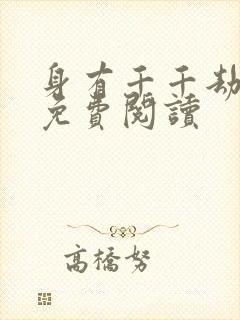 身有千千劫
免費閱讀
高橋努